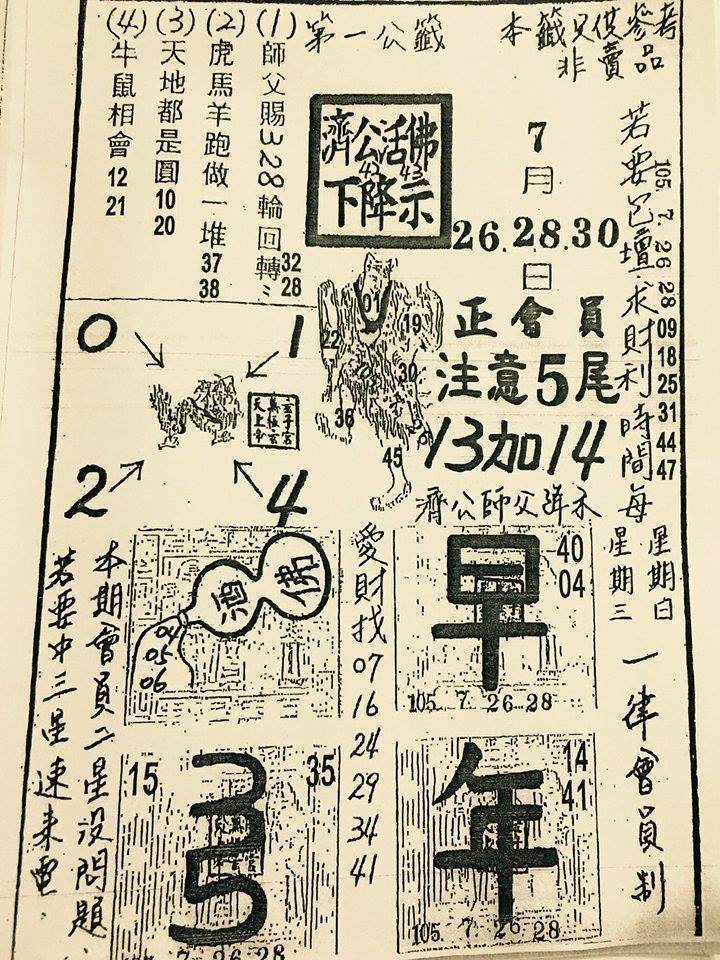 本籤只供參考
非賣品
第一公籤
(1)師父賜328輪回轉 32 28
(2)虎馬羊跑做一堆 37 38
(3)天地都是圓 10 20
(4)牛鼠相會 12 21
濟公活佛
42 43
下降示
7
月
26.28.30
日
正會員
注意5尾
13加14
濟公師父降示
若要包壇求財利時間每
星期日
星期三
一律會員制
105. 7. 26 28 09 18 25 31 44 47
01
22
19
30
36
45
0
1
2
4
玄子宮
天上帝
酒
佛
04
05
06
愛財找
07
16
24
29
34
41
早
40
04
105. 7. 26 28
35
15
35
7 26 28
年
14
41
105. 7. 26 28
本期會員二星沒問題
若要中三星速來電